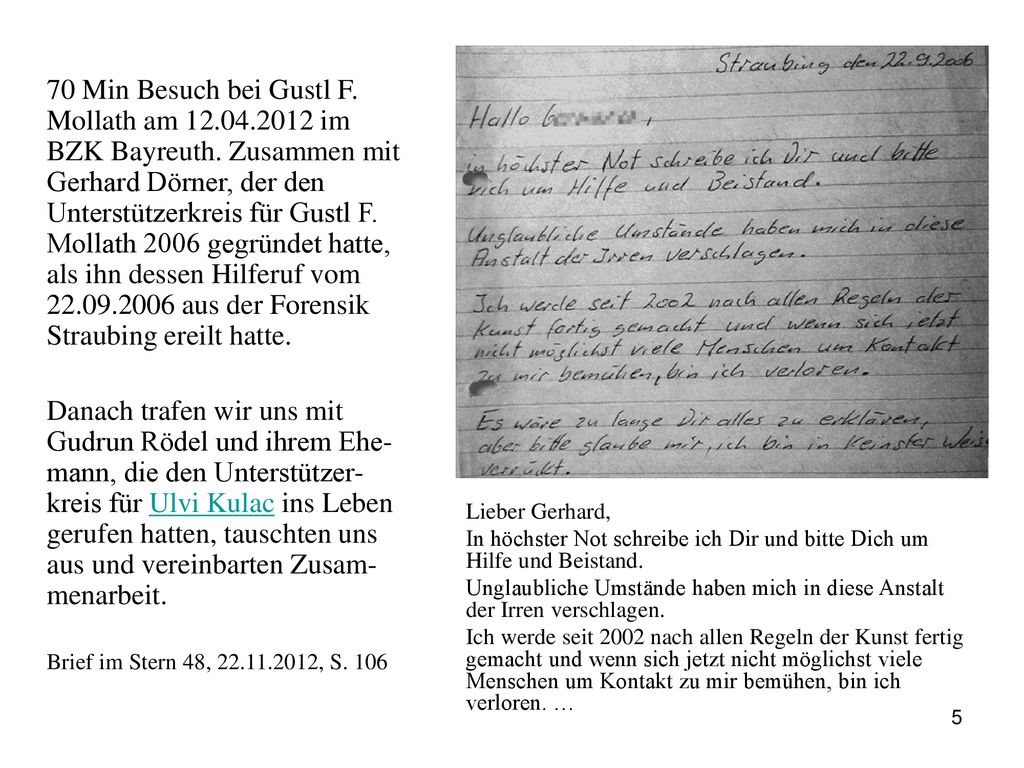 70 Min Besuch bei Gustl F.
Mollath am 12.04.2012 im
BZK Bayreuth. Zusammen mit
Gerhard Dörner, der den
Unterstützerkreis für Gustl F.
Mollath 2006 gegründet hatte,
als ihn dessen Hilferuf vom
22.09.2006 aus der Forensik
Straubing ereilt hatte.
Danach trafen wir uns mit
Gudrun Rödel und ihrem Ehe-
mann, die den Unterstützer-
kreis für Ulvi Kulac ins Leben
gerufen hatten, tauschten uns
aus und vereinbarten Zusam-
menarbeit.
Brief im Stern 48, 22.11.2012, S. 106
Straubing den 22.9.2006
Hallo
in höchster Not schreibe ich Dir und bitte
Dich um Hilfe und Beistand.
Unglaubliche Umstände haben mich in diese
Anstalt der Irren verschlagen.
Ich werde seit 2002 nach allen Regeln der
Kunst fertig gemacht und wenn sich jetzt
nicht möglichst viele Menschen um Kontakt
zu mir bemühen, bin ich verloren.
Es wäre zu lange Dir alles zu erklären,
aber bitte glaube mir, ich bin in keinster Weis
verrückt.
Lieber Gerhard,
In höchster Not schreibe ich Dir und bitte Dich um
Hilfe und Beistand.
Unglaubliche Umstände haben mich in diese Anstalt
der Irren verschlagen.
Ich werde seit 2002 nach allen Regeln der Kunst fertig
gemacht und wenn sich jetzt nicht möglichst viele
Menschen um Kontakt zu mir bemühen, bin ich
verloren. …
5